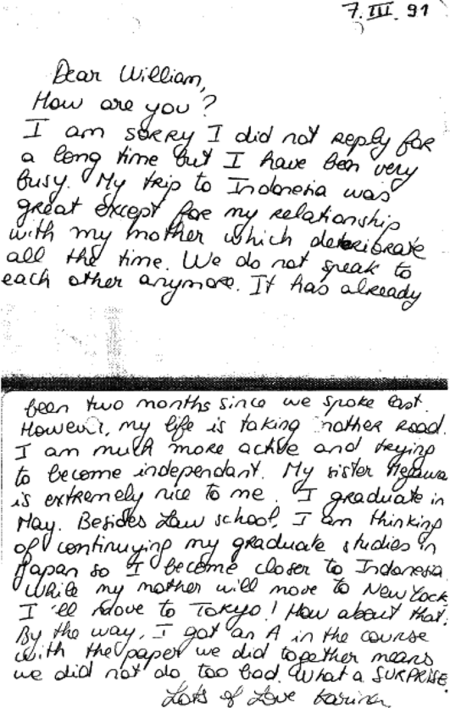 7. III. 91
Dear William,
How are you?
I am sorry I did not reply for
a long time but I have been very
busy. My trip to Indonesia was
great except for my relationship
with my mother which deteribrate
all the time. We do not speak to
each other anymore. It has already
been two months since we spoke last.
However, my life is taking nother road.
I am much more active and trying
to become independant. My sister
is extremely nice to me. I graduate in
May. Besides Law school, I am thinking
of continuying my graduate studies in
Japan so I become closer to Indonesia.
While my mother will move to New York
I'll move to Tokyo! How about that.
By the way, I got an A in the course
with the paper we did together means
we did not do too bad. What a SURPRISE.
Lots of Love Karina